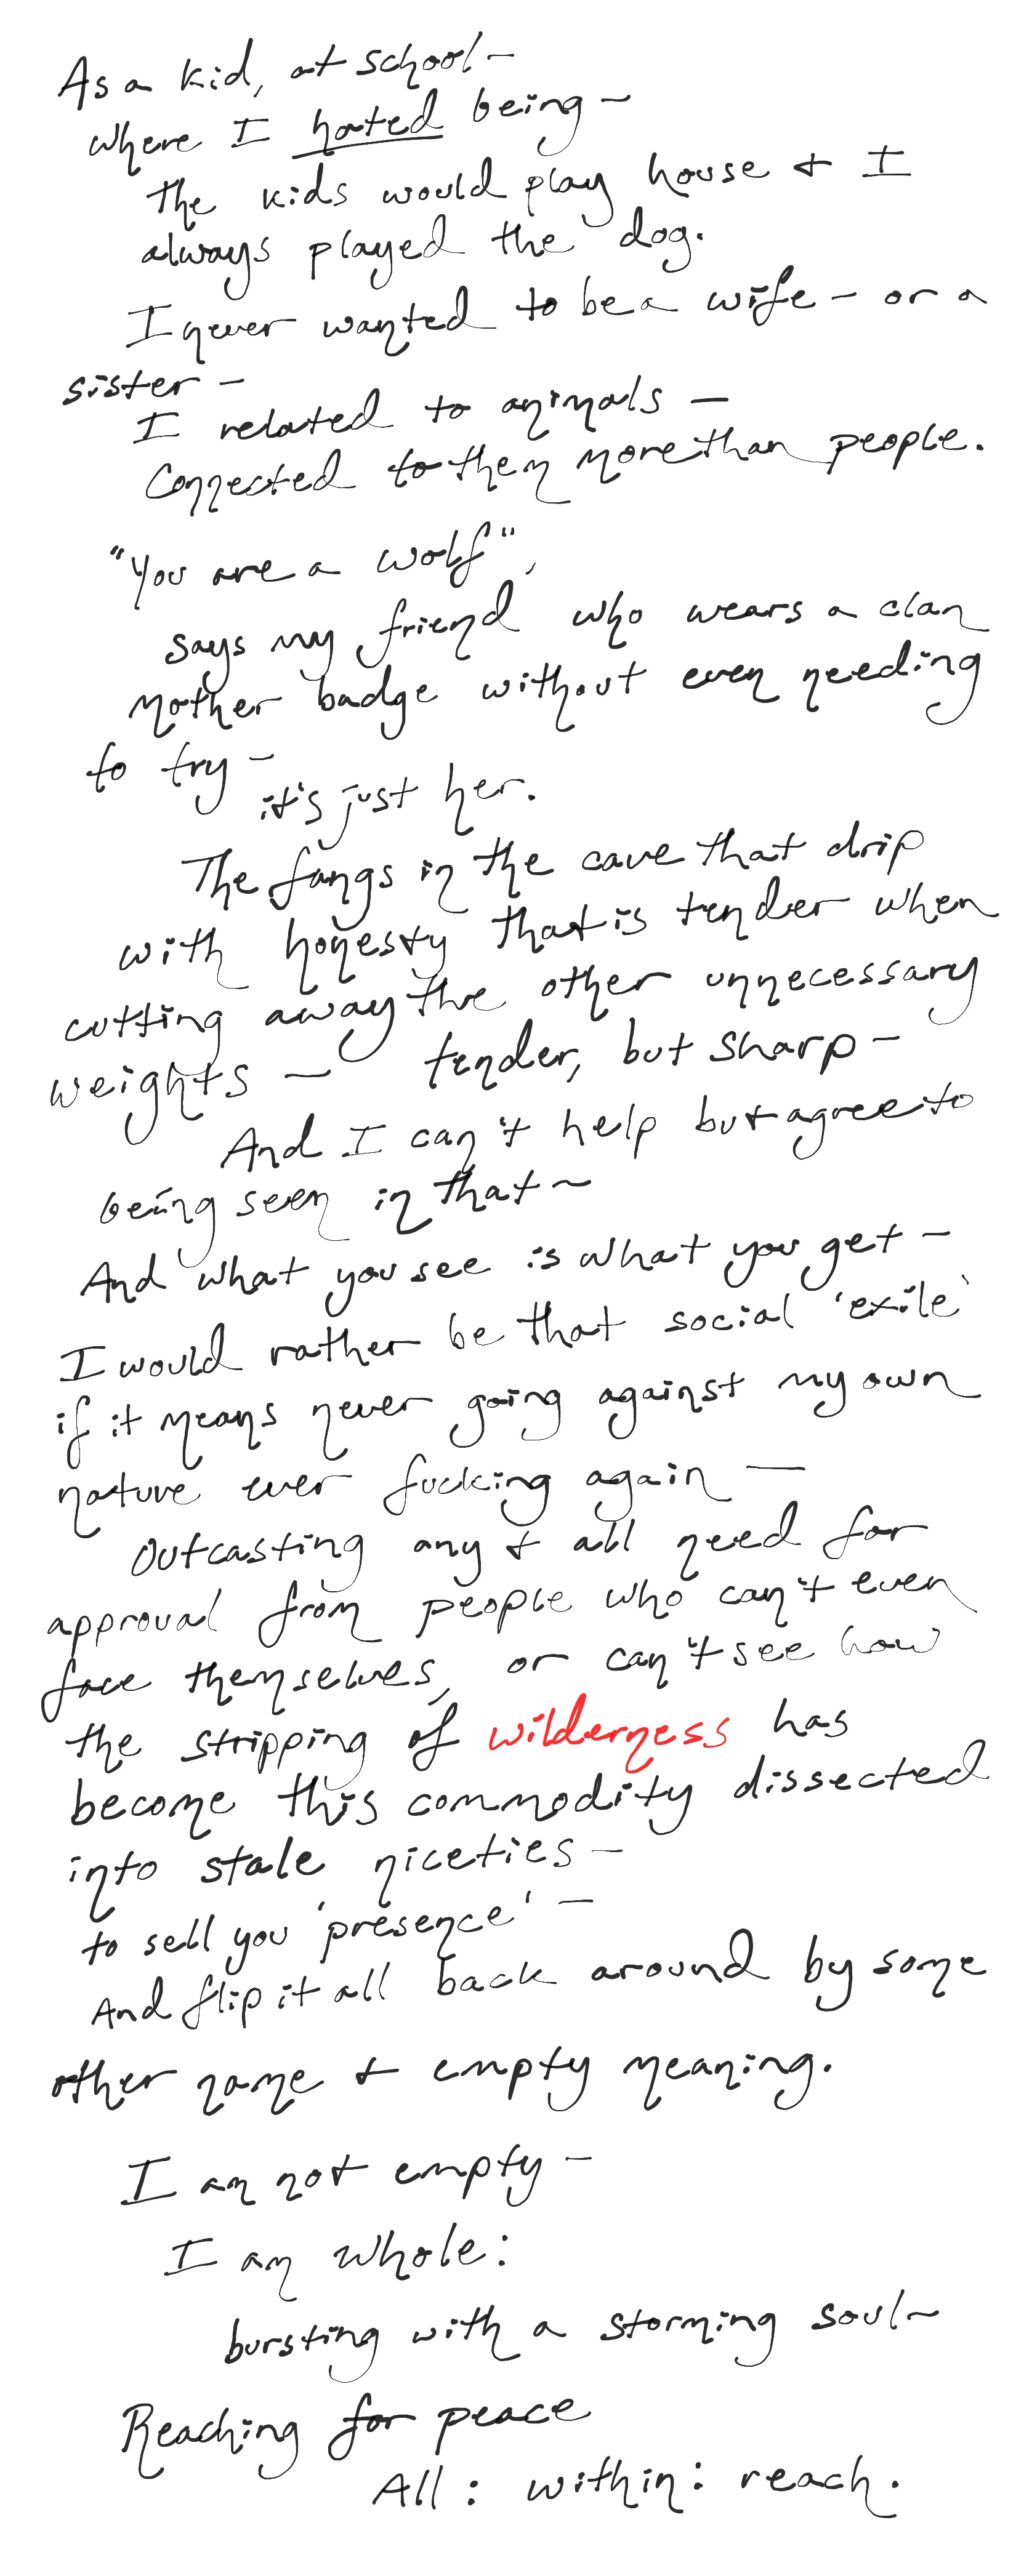 As a kid, at school –
where I hated being –
the kids would play house + I
always played the dog.
I never wanted to be a wife – or a
sister –
I related to animals –
Connected to them more than people.
"You are a wolf",
says my friend who wears a clan
mother badge without even needing
to try –
it's just her.
The fangs in the cave that drip
with honesty that is tender when
cutting away the other unnecessary
weights – tender, but sharp –
And I can't help but agree to
being seen in that ~
And what you see is what you get –
I would rather be that social 'exile'
if it means never going against my own
nature ever fucking again –
Outcasting any + all need for
approval from people who can't even
face themselves, or can't see how
the stripping of wilderness has
become this commodity dissected
into stale niceties –
to sell you 'presence' –
And flip it all back around by some
other name + empty meaning.
I am not empty –
I am whole:
bursting with a storming soul ~
Reaching for peace
All: within: reach.